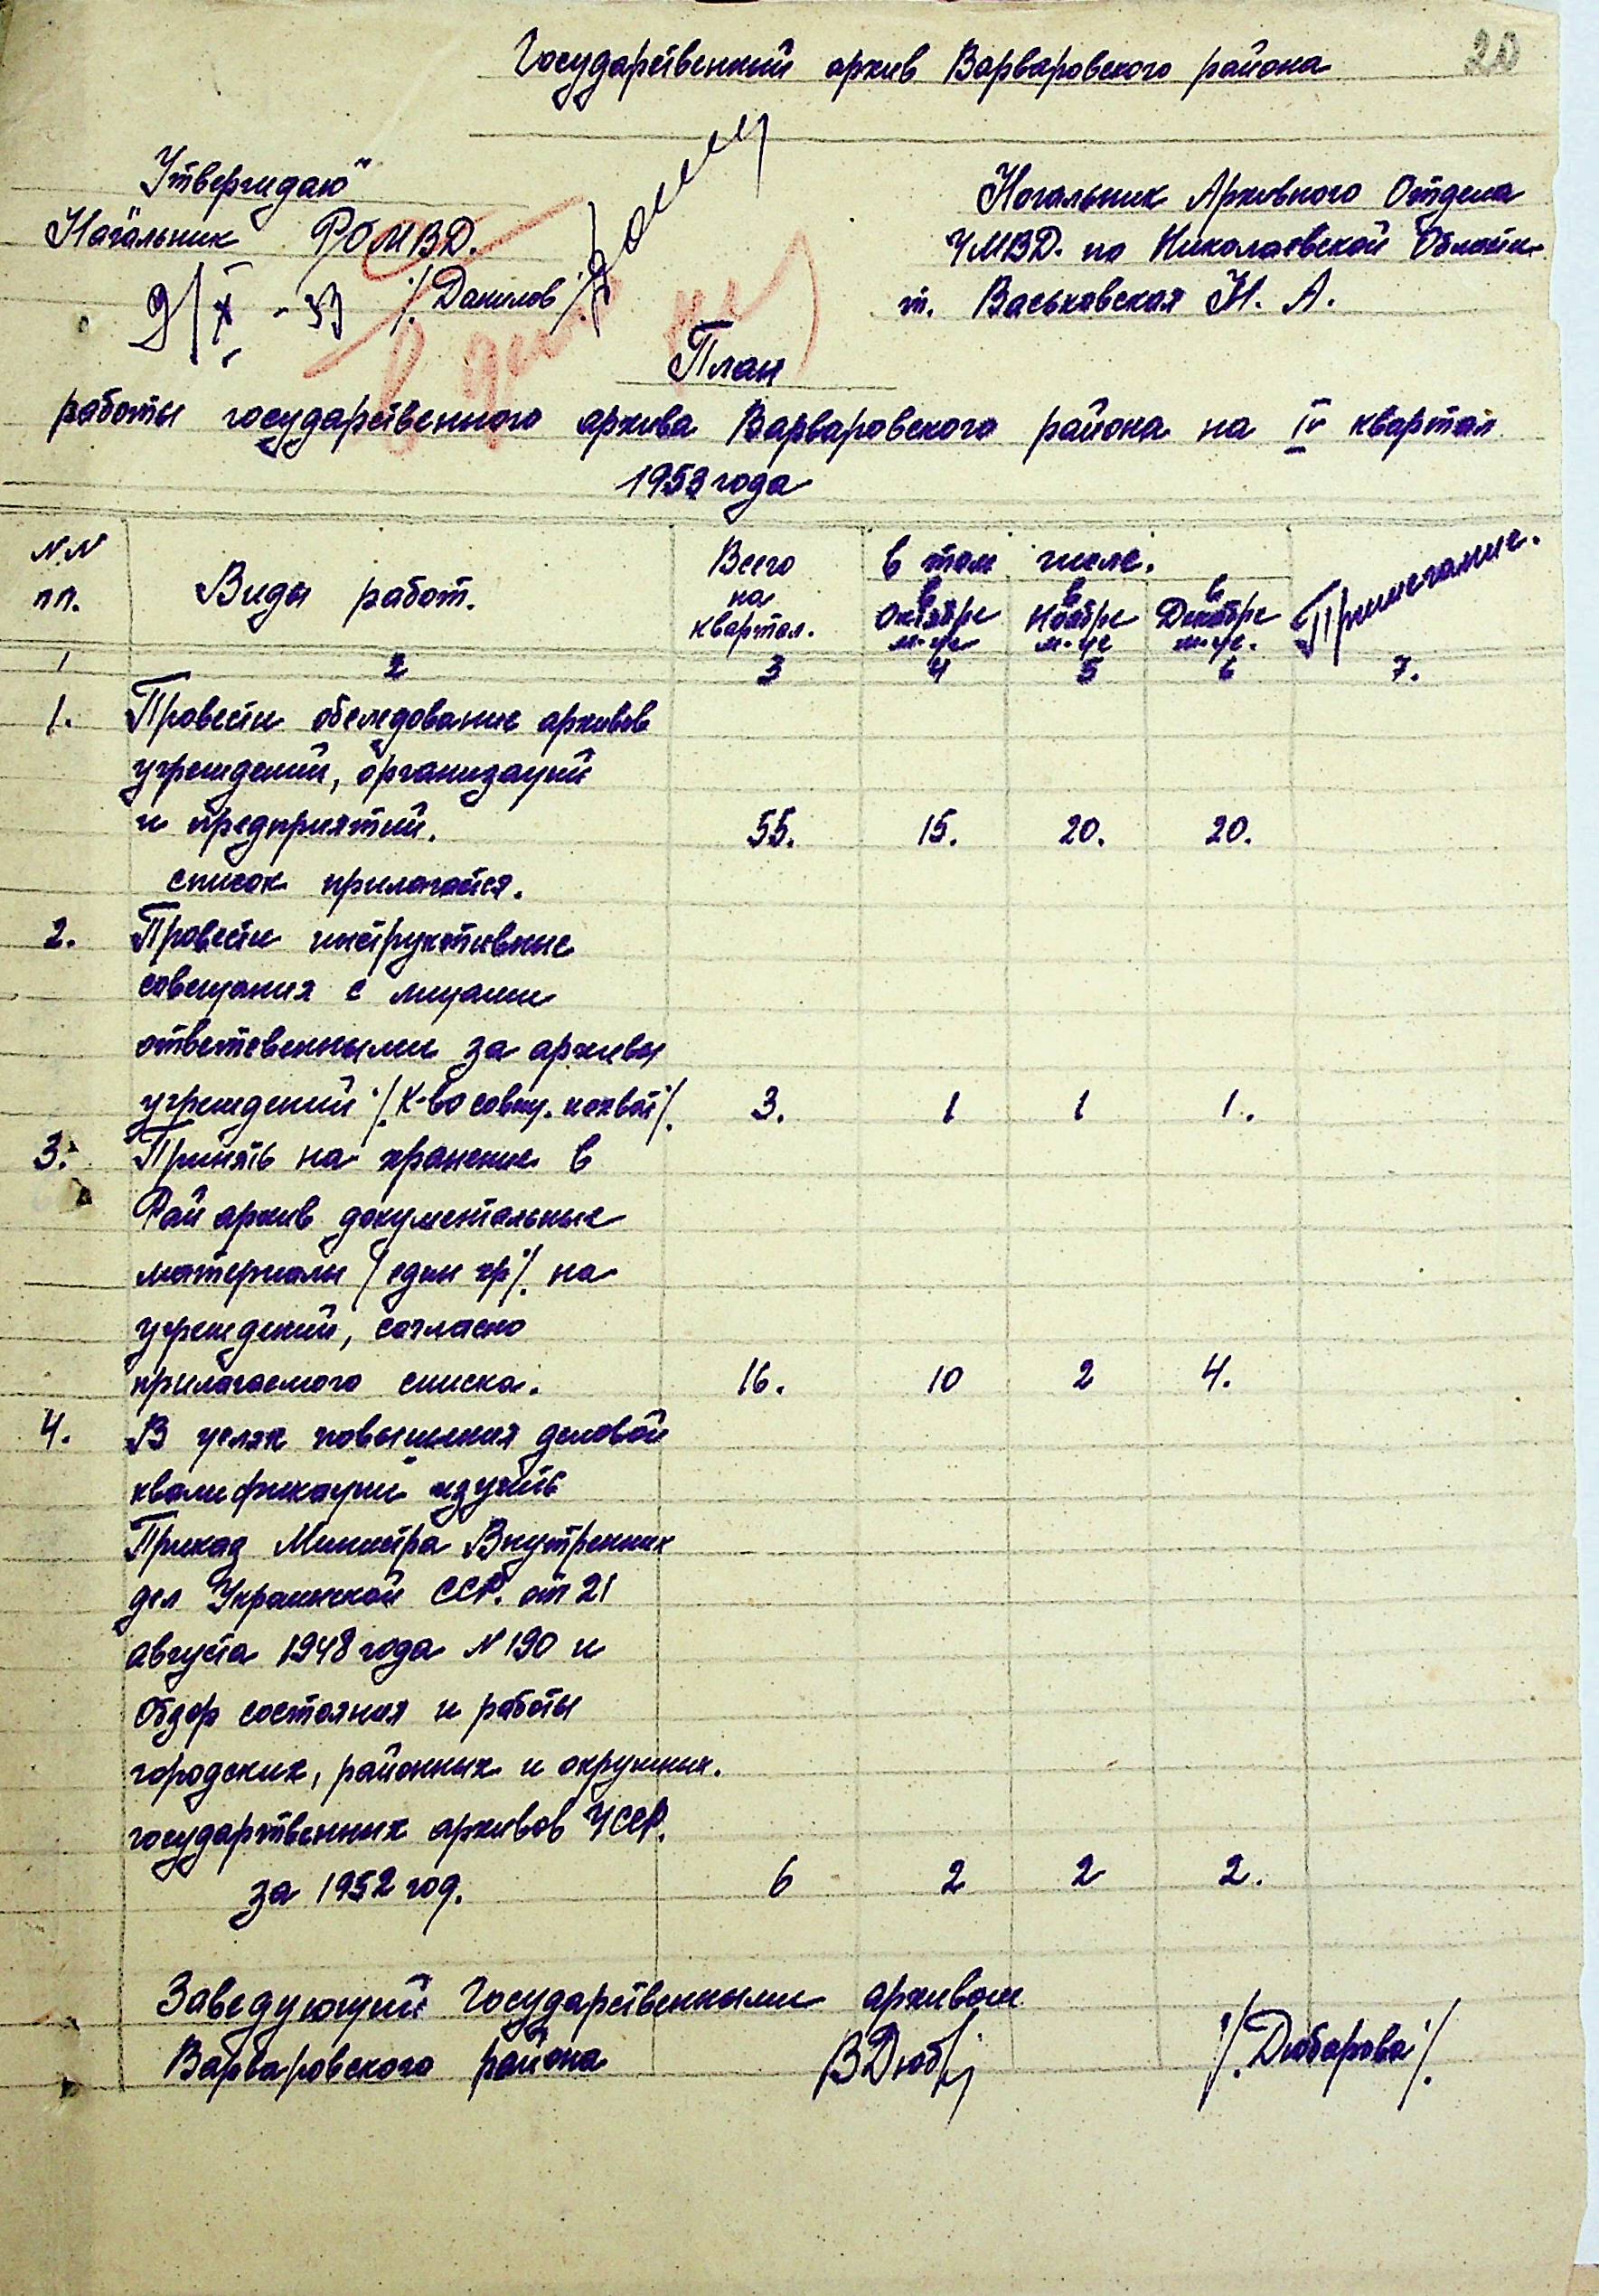 Государственный архив Варваровского района
20
Утверждаю"
Начальник РОМВД.
/Данилов/
Начальник Архивного Отдела
УМВД. по Николаевской Области
т. Васьковская Н. А.
План
работы государственного архива Варваровского района на IV квартал
1953 года
N.N пп.
Виды работ.
Всего на квартал.
в том числе.
в Октябре м-це
в Ноябре м-це
в Декабре м-це.
Примечание.
1 2 3 4 5 6 7.
1. Провести обследование архивов
учреждений, организаций
и предприятий. 55. 15. 20. 20.
список прилагается.
2. Провести инструктивные
совещания с лицами
ответсвенными за архивы
учреждений /К-во совещ. 3. 1 1 1.
3. Принять на хранение в
Рай архив документальные
материалы /един хр/. на
учреждений, согласно
прилагаемого списка. 16. 10 2 4.
4. В целях повышения деловой
квалификации изучить
Приказ Министра Внутренних
дел Украинской ССР. от 21
августа 1948 года N 190 и
Обзор состояния и работы
городских, районных и окружных.
государственных архивов УССР.
за 1952 год. 6 2 2 2.
Заведующий Государственными архивом
Варваровского района ВДюб /.Дюбарова/.